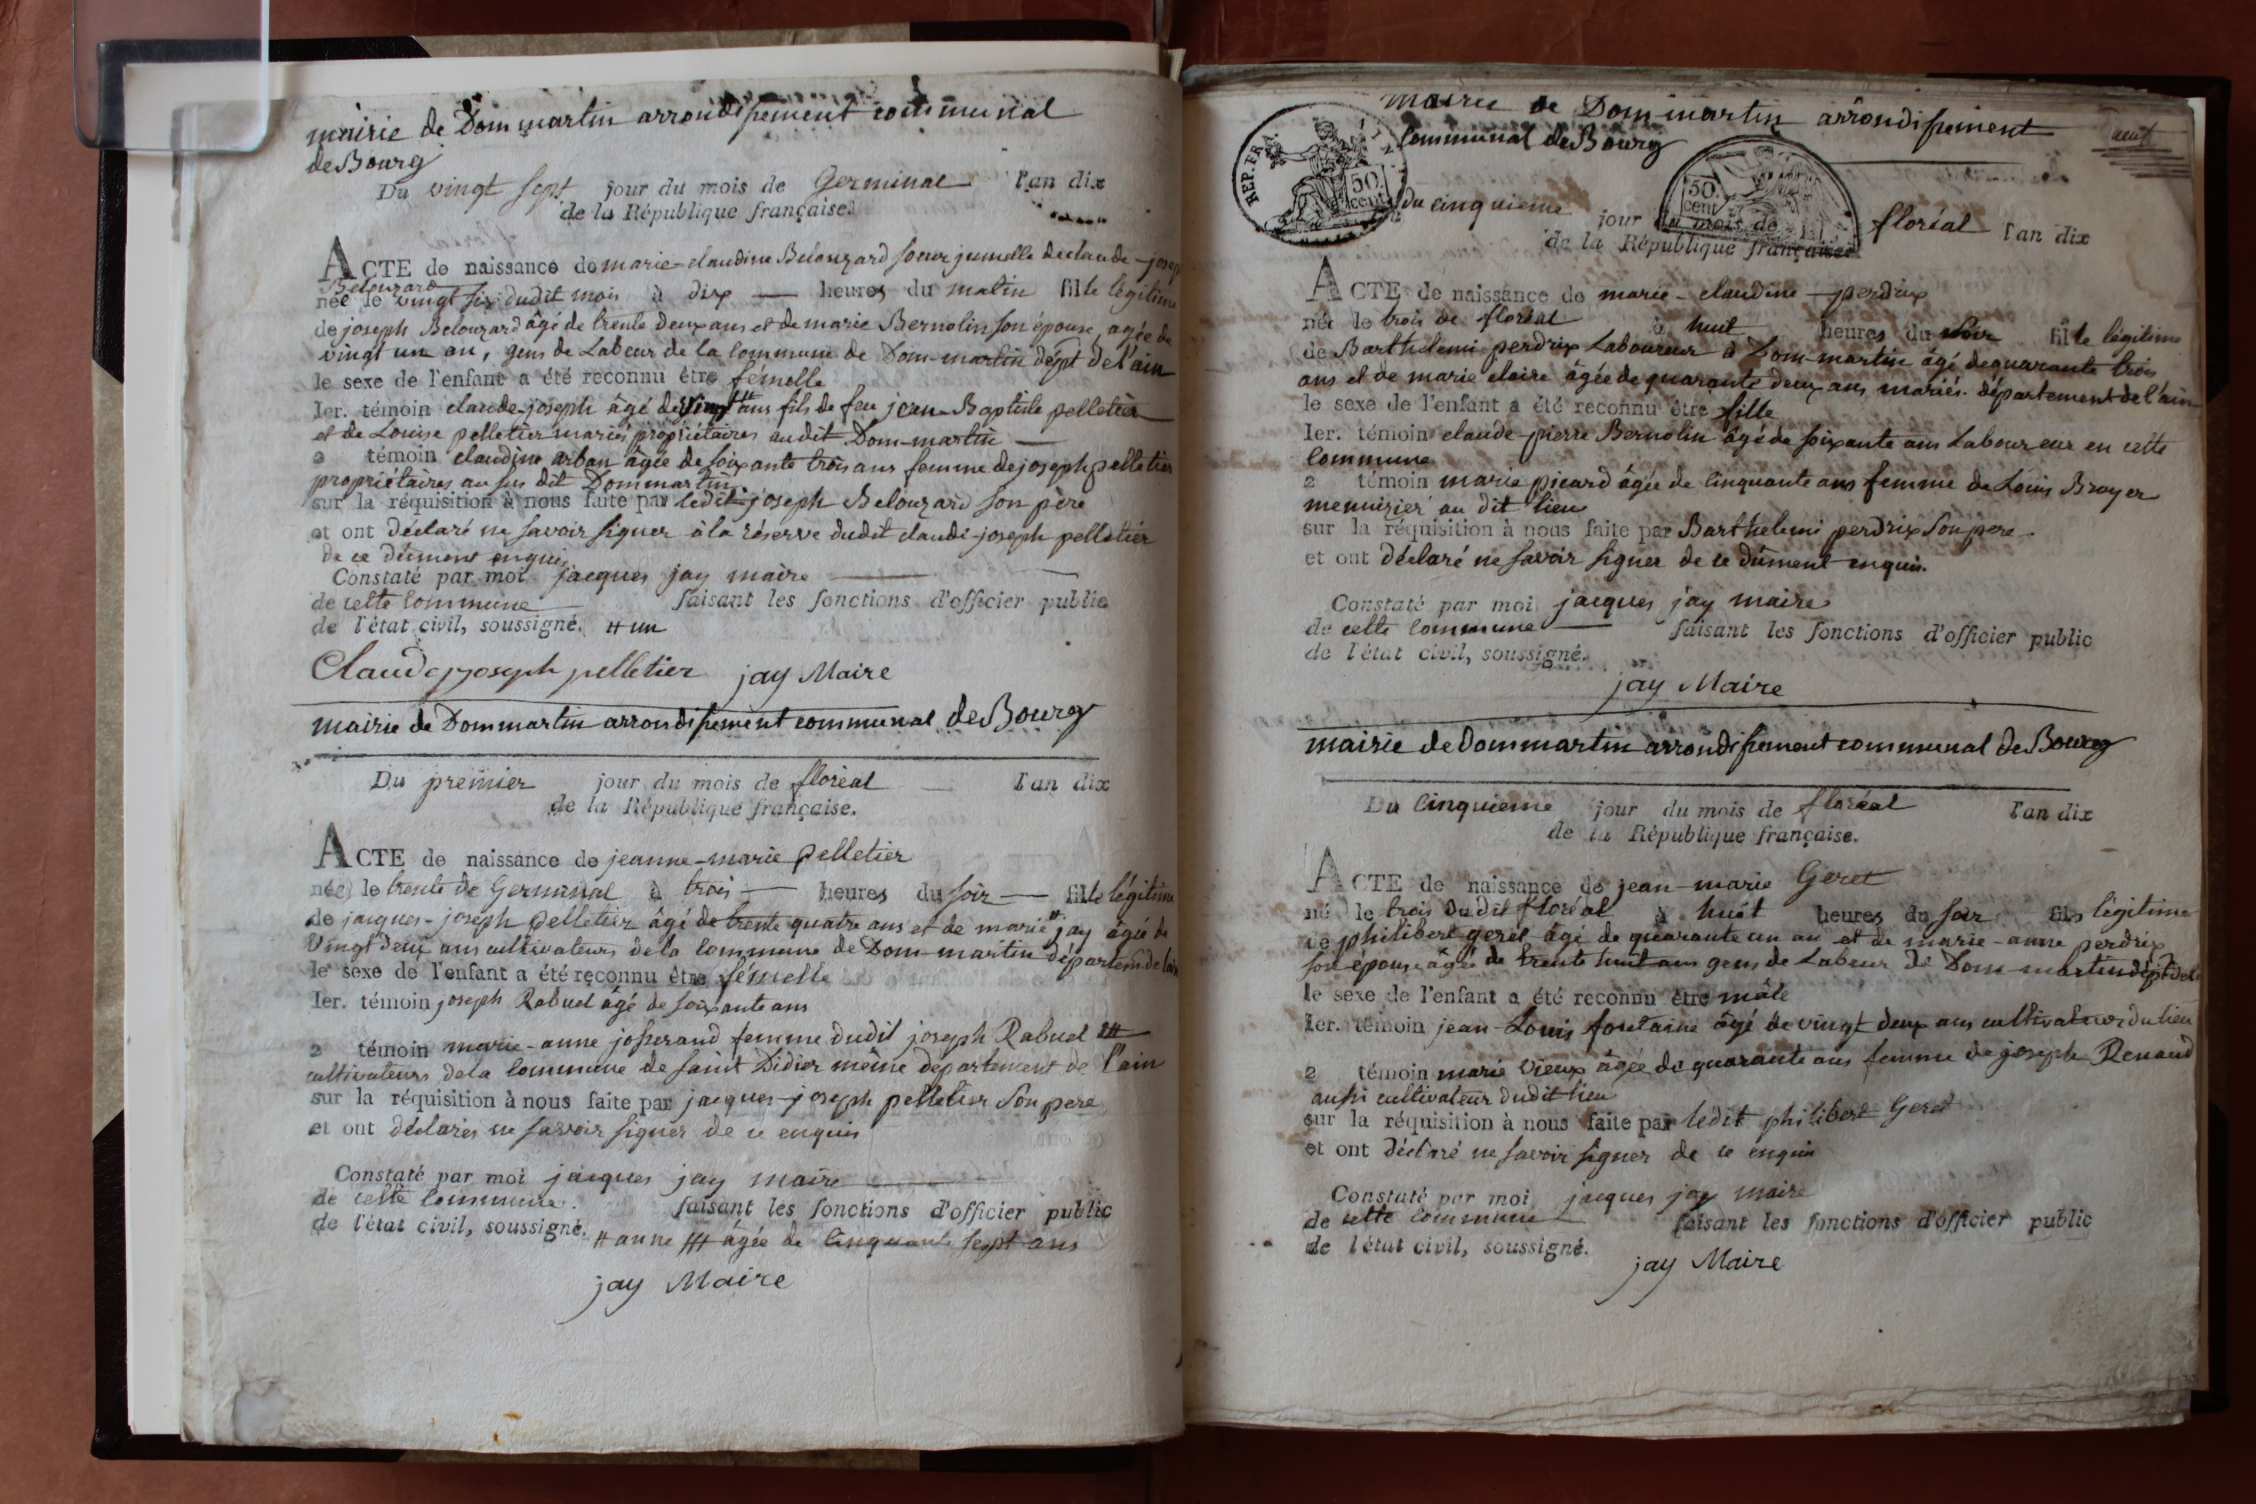 mairie de Dommartin arrondissement communal
de Bourg
Du vingt sept jour du mois de Germinal l'an dix
de la République française.
ACTE de naissance de marie-claudine Belouzard soeur jumelle de claude-josep
Belouzard
née le vingt six dudit mois à dix heures du matin fille légitime
de joseph Belouzard âgé de trente deux ans et de marie Bernolin son épouse, agée de
vingt un an, gens de Labeur de la Commune de Dom-martin dépt de l'ain
le sexe de l'enfant a été reconnu être fémelle
Ier. témoin claude-joseph âgé de vingt # ans fils de feu jean-Baptiste pelletier
et de Louise pelletier mariés propriétaires audit Dom-martin
2 témoin claudine arban âgée de soixante trois ans femme de joseph pelletier
propriétaires au sus dit Dommartin
sur la réquisition à nous faite par ledit joseph Belouzard son père
et ont déclaré ne savoir signer à la réserve dudit claude-joseph pelletier
de ce dûment enquis
Constaté par moi jacques jay maire
de cette Commune faisant les fonctions d'officier public
de l'état civil, soussigné. # un
Claude joseph pelletier jay Maire
mairie de Dommartin arrondissement communal de Bourg
Du premier jour du mois de floréal l'an dix
de la République française.
ACTE de naissance de jeanne-marie pelletier
née le trente de Germinal à trois heures du soir fille légitime
de jacques-joseph pelletier âgé de trente quatre ans et de marie # jay agée de
vingt deux ans cultivateurs de la Commune de Dom-martin départem. de lain
le sexe de l'enfant a été reconnu être fémelle
Ier. témoin joseph Rabuel âgé de soixante ans
2 témoin marie-anne josserand femme dudit joseph Rabuel ##
cultivateurs de la Commune de saint Didier même département de l'ain
sur la réquisition à nous faite par jacques-joseph pelletier son pere
et ont déclarés ne savoir signer de ce enquis
Constaté par moi jacques jay maire
de cette Commune. faisant les fonctions d'officier public
de l'état civil, soussigné. # anne ## âgée de Cinquante sept ans
jay Maire
mairie de Dom-martin arrondissement
neuf
Communal de Bourg
REP. FRA.
50 cent
50 cent
du cinquieme jour du mois de floréal l'an dix
de la République française
ACTE de naissance de marie-claudine perdrix
née le trois de floréal à huit heures du soir fille légitime
de Barthelemi perdrix Laboureur à Dom-martin âgé de quarante trois
ans et de marie claire âgée de quarante deux ans mariés. département de l'ain
le sexe de l'enfant a été reconnu être fille
Ier. témoin claude-pierre Bernolin âgé de soixante ans Laboureur en cette
Commune
2 témoin marie picard âgée de Cinquante ans femme de Louis Broyer
menuisier au dit lieu
sur la réquisition à nous faite par Barthelemi perdrix son pere
et ont déclaré ne savoir signer de ce dûment enquis.
Constaté par moi jacques jay maire
de cette Commune faisant les fonctions d'officier public
de l'état civil, soussigné.
jay Maire
mairie de Dommartin arrondissement communal de Bourg
Du Cinquieme jour du mois de floréal l'an dix
de la République française.
ACTE de naissance de jean-marie Geret
né le trois dudit floréal à huit heures du soir fils légitime
de philibert geret âgé de quarante un an et de marie-anne perdrix
son épouse âgée de trente huit ans gens de Labeur de Dom-martin dépt de
le sexe de l'enfant a été reconnu être mâle
Ier. témoin jean-Louis fontaine âgé de vingt deux ans cultivateur du lieu
2 témoin marie vieux âgée de quarante ans femme de joseph Renaud
aussi cultivateur dudit lieu
sur la réquisition à nous faite par ledit philibert Geret
et ont déclaré ne savoir signer de ce enquis
Constaté par moi jacques jay maire
de cette Commune faisant les fonctions d'officier public
de l'état civil, soussigné.
jay Maire